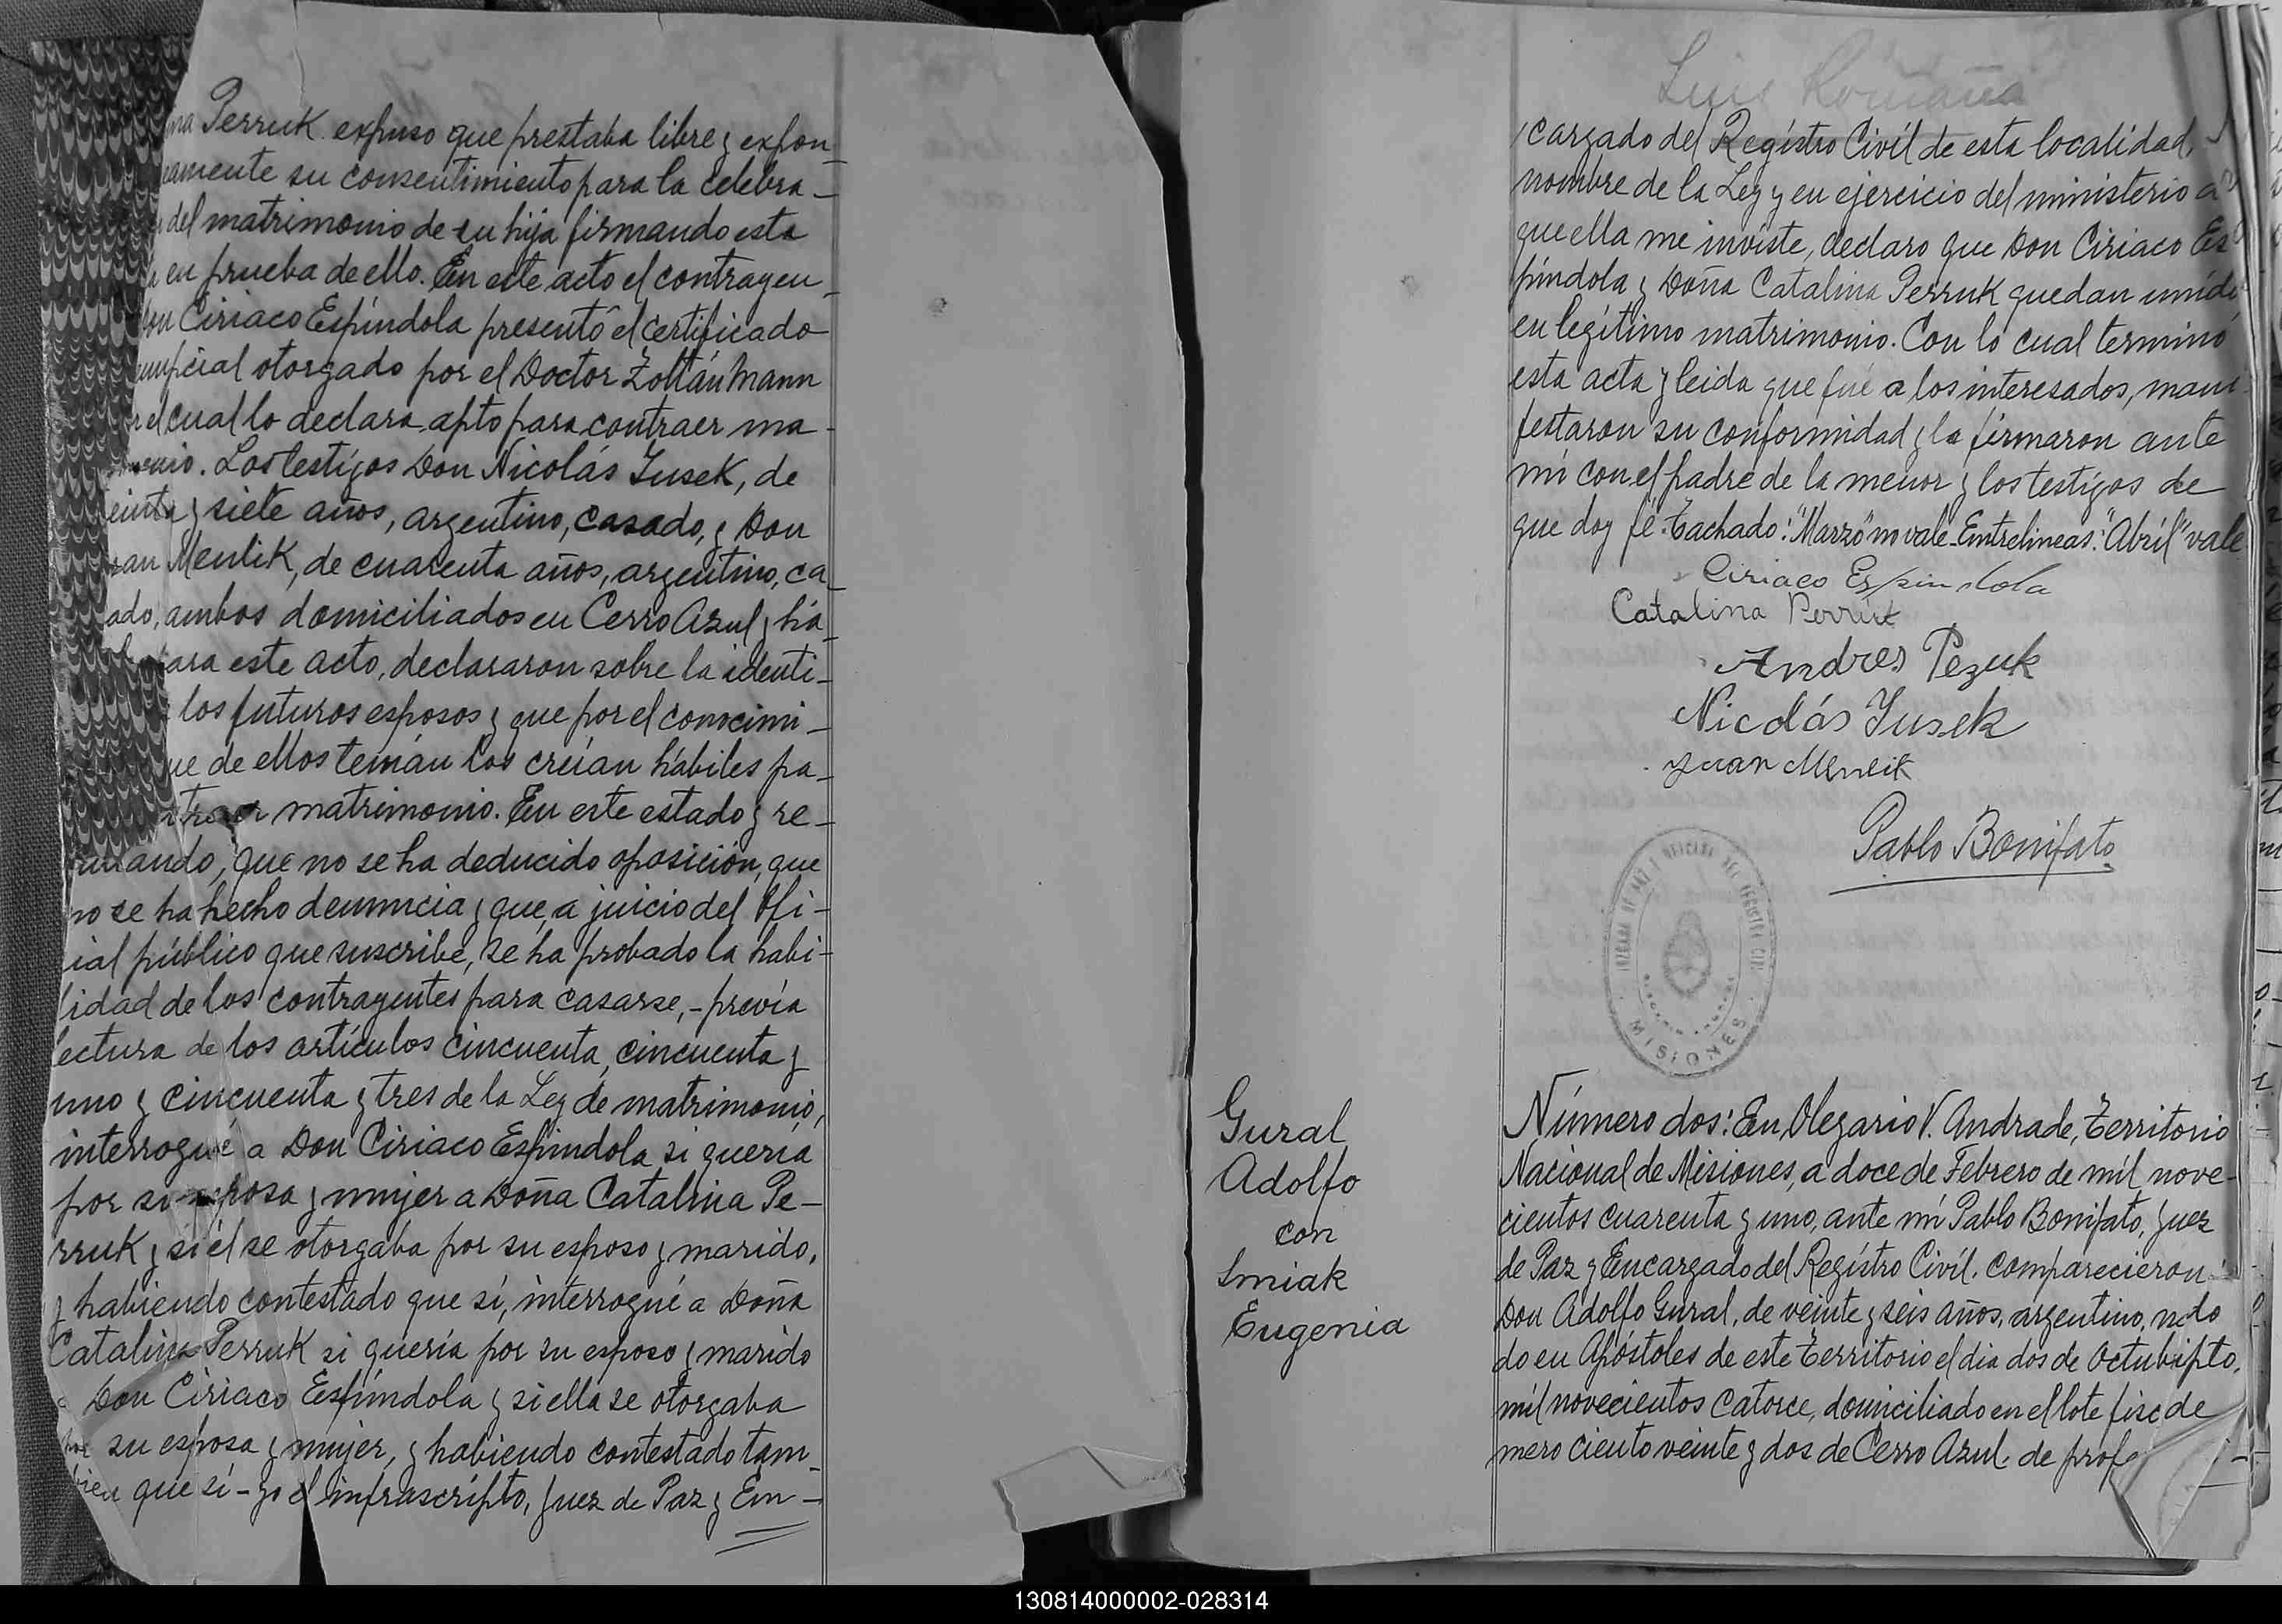 na Perruk expuso que prestaba libre y expon-
eamente su consentimiento para la celebra-
del matrimonio de su hija firmando esta
en prueba de ello. En este acto el contrayen-
Don Ciriaco Espíndola presentó el certificado
enupcial otorgado por el Doctor Zoltán Mann
el cual lo declara apto para contraer ma-
monio. Los testigos Don Nicolás Jusek, de
einta y siete años, argentino, casado, y Don
uan Menlik, de cuarenta años, argentino, ca-
ado, ambos domiciliados en Cerro Azul y há-
para este acto, declararon sobre la identi-
los futuros esposos y que por el conocimi-
ue de ellos tenían los creían hábiles pa-
traer matrimonio. En este estado y re-
ultando, que no se ha deducido oposición, que
no se ha hecho denuncia y que, a juicio del Ofi-
ial público que suscribe, se ha probado la habi-
lidad de los contrayentes para casarse,- previa
lectura de los artículos cincuenta, cincuenta y
uno y cincuenta y tres de la Ley de matrimonio,
interrogué a Don Ciriaco Espíndola si quería
por su esposa y mujer a Doña Catalina Pe-
rruk y si él se otorgaba por su esposo y marido,
y habiendo contestado que sí, interrogué a Doña
Catalina Perruk si quería por su esposo y marido
a Don Ciriaco Espíndola y si ella se otorgaba
por su esposa y mujer, y habiendo contestado tam-
bien que sí - yo el infrascripto, Juez de Paz y En-
Luis Romaña
cargado del Regístro Civíl de esta localidad,
nombre de la Ley y en ejercicio del ministerio a
que ella me inviste, declaro que Don Ciriaco Es
píndola y Doña Catalina Perruk quedan unido
en legítimo matrimonio. Con lo cual terminó
esta acta y leida que fué a los interesados, mani
festaron su conformidad y la firmaron ante
mí con el padre de la menor y los testigos de
que doy fé. Tachado: "Marzo" no vale - Entrelineas: "Abríl" vale
Ciriaco Espindola
Catalina Perruk
Andres Pezuk
Nicolás Jusek
Juan Menlik
Pablo Bonifato
MISIONES
Gural
Adolfo
con
Smiak
Eugenia
Número dos: En Olegario V. Andrade, Territorio
Nacional de Misiones, a doce de Febrero de mil nove-
cientos cuarenta y uno, ante mí Pablo Bonifato, Juez
de Paz y Encargado del Regístro Civíl, comparecieron:
Don Adolfo Gural, de veinte y seis años, argentino,
do en Apóstoles de este Territorio el dia dos de
mil novecientos catorce, domiciliado en el lote
mero ciento veinte y dos de Cerro Azul, de
130814000002-028314